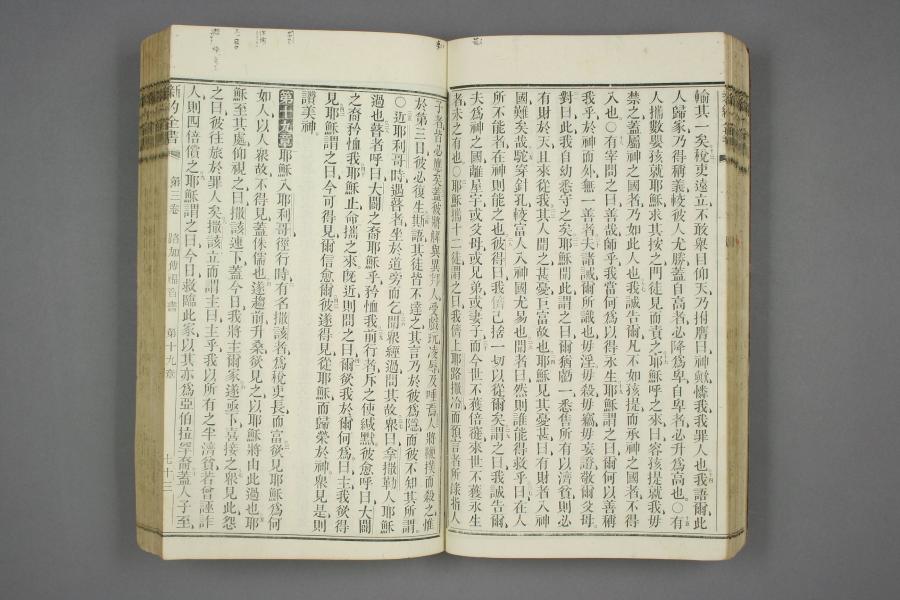 輸其一矣稅吏遠立不敢舉目仰天乃拊膺曰神歟憐我我罪人也我語爾此
人歸家乃得稱義較彼人尤勝蓋自高者必降為卑自卑者必升為高也○有
人攜數嬰孩就耶穌求其按之門徒見而責之耶穌呼之來曰容孩提就我毋
禁之蓋屬神之國者乃如此人也我誠告爾凡不如孩提而承神之國者不得
入也○有宰問之曰善哉師乎我當何為以得永生耶穌謂之曰爾何以善稱
我乎於神而外無一善者夫諸誡爾所識也毋淫毋殺毋竊毋妄證敬爾父母
對曰此我自幼悉守之矣耶穌聞此謂之曰爾猶虧一悉售所有以濟貧則必
有財於天且來從我其人聞之甚憂巨富故也耶穌見其憂甚曰有財者入神
國難矣哉駝穿針孔較富人入神國尤易也聞者曰然則誰能得救乎曰在人
所不能者在神則能之也彼得曰我儕已捨一切以從爾矣謂之曰我誠告爾
夫為神之國離屋宇或父母或兄弟或妻子而今世不獲倍蓰來世不獲永生
者未之有也○耶穌攜十二徒謂之曰我儕上耶路撒冷而預言者所錄指人
子者皆必應矣蓋彼將解與異邦人受戲玩凌辱及唾焉人將鞭撲而殺之惟
於第三日彼必復生其徒皆不達之其言乃於彼為隱而彼不知其所謂
○近耶利哥時遇瞽者坐於道旁而乞聞眾經過問其故眾曰拿撒勒人耶穌
過也瞽者呼曰大闢之裔耶穌乎矜恤我前行者斥之使緘默彼愈呼曰大闢
之裔矜恤我耶穌止命攜之來既近則問之曰爾欲我於爾何為曰主我欲得
見耶穌謂之曰今可得見爾信愈爾彼遂得見從耶穌而歸榮於神眾見是則
讚美神
第十九章 耶穌入耶利哥徑行時有名撒該者為稅吏長而富欲見耶穌為何
如人以人眾故不得見蓋侏儒也遂趨前升桑欲見之以耶穌將由此過也耶
穌至其處仰視之曰撒該速下蓋今日我將主爾家遂亟下喜接之眾見此怨
之曰彼往旅於罪人矣撒該立而謂主曰主乎我以所有之半濟貧若曾誣詐
人則四倍償之耶穌謂之曰今日救臨此家以其亦為亞伯拉罕裔蓋人子至
新約全書 第三卷 路加傳福音書 第十九章 七十三